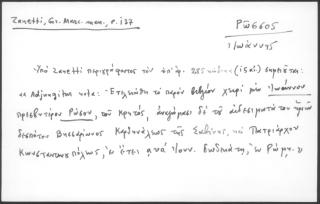 Zanetti, Gr. Marc. man., p. 137
Ῥῶσσος
Ἰωάννης
Ὑπὸ Zanetti περιγράφοντος τὸν ὑπ' ἀρ. 285 κώδικα (ισαι.) σημειοῦται:
" Adjungitur nota: " Ἐτελειώθη τὸ παρὸν βιβλίον χειρὶ μὲν Ἰωάννου
πρεσβυτέρου Ῥώσου, τοῦ Κρητός, ἀναλώμασι δὲ τοῦ αἰδεσιμωτάτου ἡμῶν
δεσπότου Βησσαρίωνος Καρδηνάλεως τῆς Σαβίνης, καὶ Πατριάρχου
Κωνσταντινουπόλεως, ἐν ἔτει Ἰουν. δωδεκάτῃ, ἐν Ῥώμῃ. "